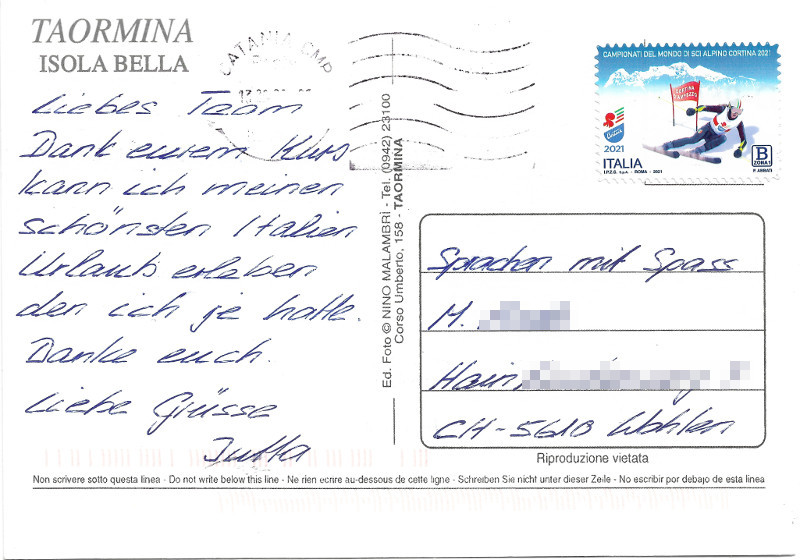 TAORMINA
ISOLA BELLA
CATANIA CMP
Liebes Team
Dank eurem Kurs
kann ich meinen
schönsten Italien
Urlaub erleben
den ich je hatte.
Danke euch.
Liebe Grüsse
Jutta
Ed. Foto © NINO MALAMBRÌ - Tel. (0942) 23100
Corso Umberto, 158 - TAORMINA
CAMPIONATI DEL MONDO DI SCI ALPINO CORTINA 2021
CORTINA
Cortina
2021
ITALIA
B
ZONA 1
I.P.Z.S. S.p.A. - ROMA - 2021
Sprachen mit Spass
M.
CH-5610 Wohlen
Riproduzione vietata
Non scrivere sotto questa linea - Do not write below this line - Ne rien ecrire au-dessous de cette ligne - Schreiben Sie nicht unter dieser Zeile - No escribir por debajo de esta linea